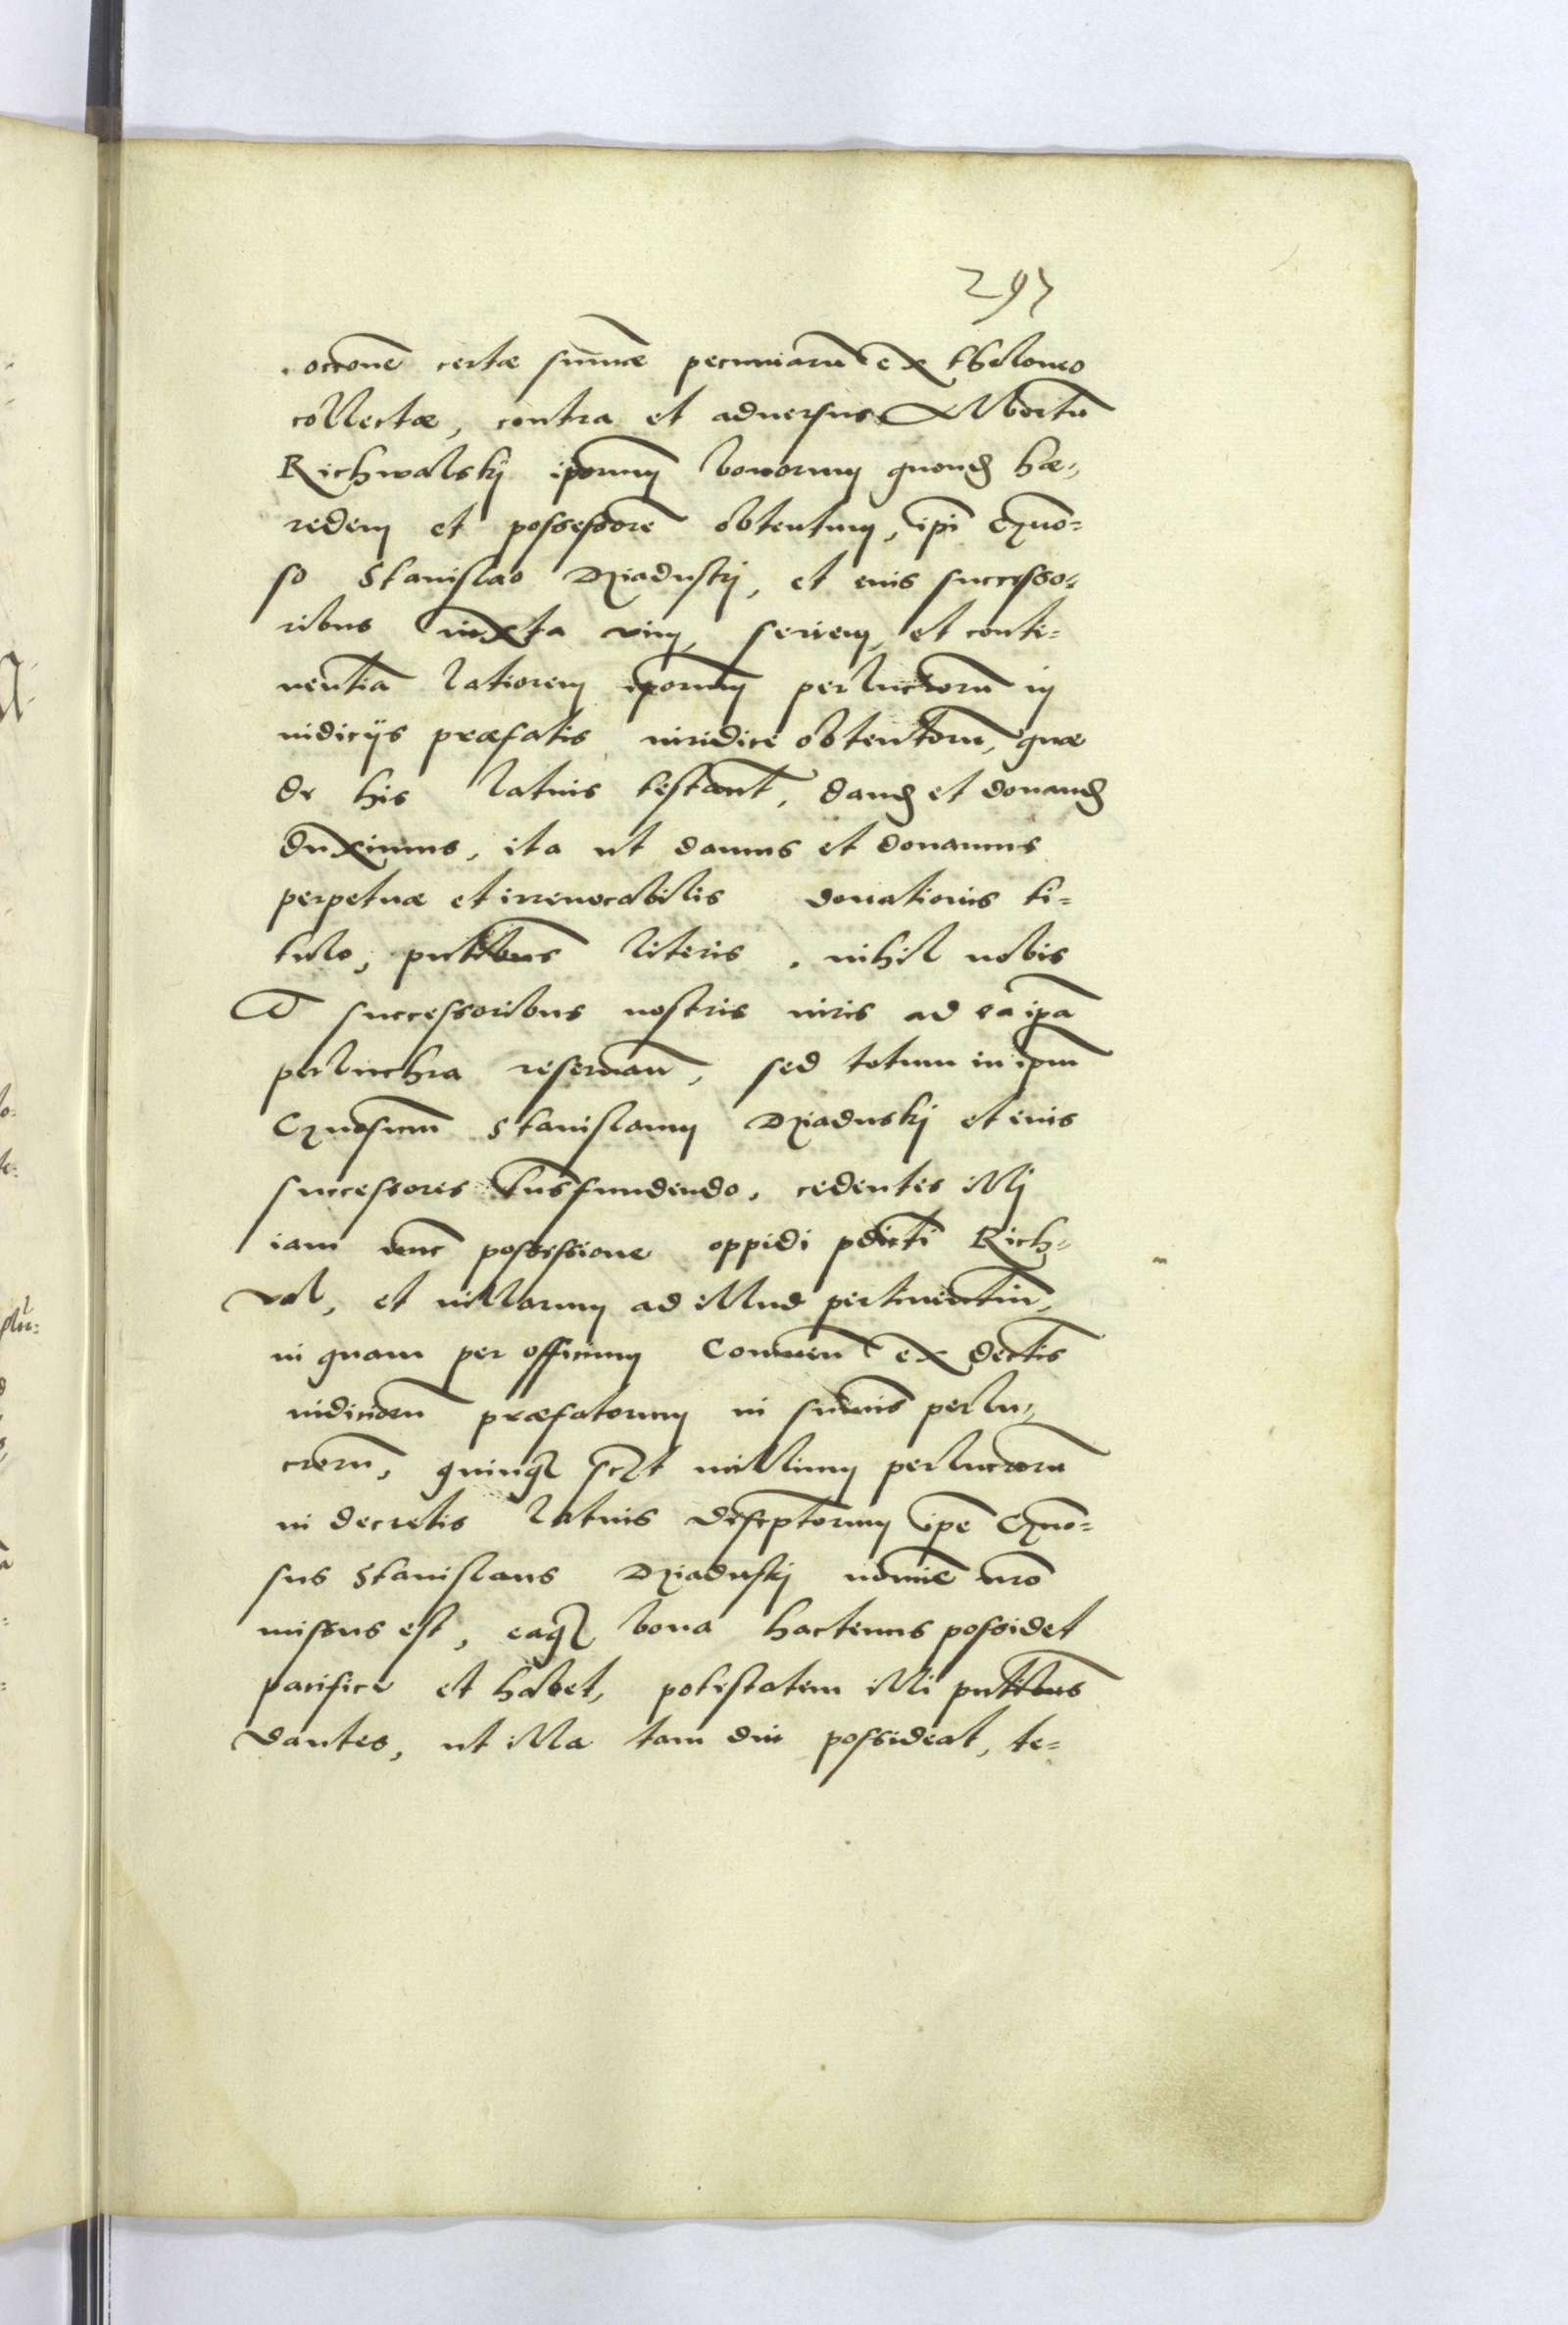 297
occone certæ sumæ pecuniaru ex theloneo
collectæ, contra et aduersus Albertu
Richwalskij iporum bonorum quond hæ-
redem et possessore obtentum, ipi Gnuo-
so Stanislao Dziaduskj, et eius successo-
ribus iuxta vim, seriem, et conti-
nentia latiorem iporum perlucroru in
iudicijs præfatis iuridice obtentoru, quæ
de his latius testant, dand et donand
duximus, ita ut damus et donamus
perpetuæ et irreuocabilis donationis ti-
tulo, pntibus literis. nihil nobis
et successoribus nostris iuris ad ea ipa
perluchra reseruan, sed totum in ipm
Gnuosum Stanislaum Dziaduskj et eius
successores tnsfundendo, cedentes illj
iam nunc possessione oppidi pdicti Rich-
val, et villarum ad illud pertinentiu,
in quam per officium Conuen ex dectis
iudicioru præfatorum in sumis perlu-
croru, quinq sclt millium perlucroru
in decretis latius descptorum ipe Gnuo-
sus Stanislaus Dziaduskj nomie nro
missus est, eaq bona hactenus possidet
pacifice et habet, potestatem illi pntibus
dantes, ut illa tam diu possideat, te-